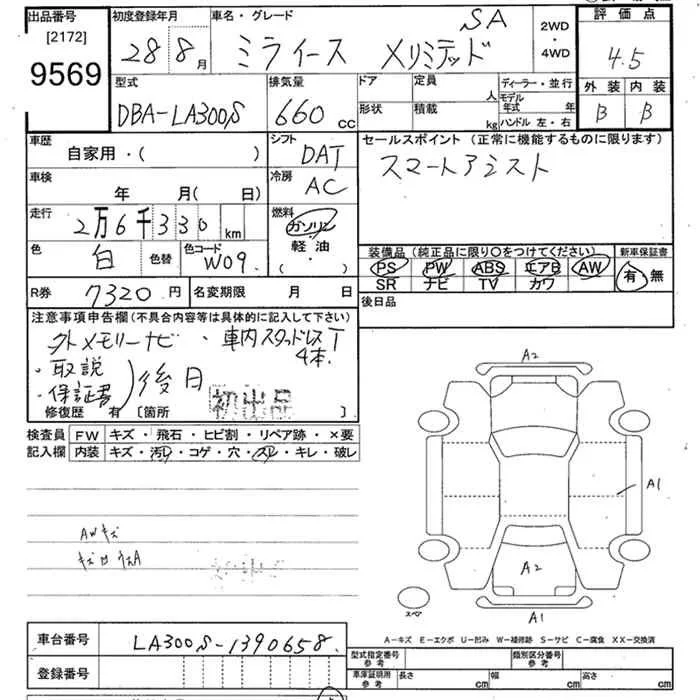 出品番号
[2172]
9569
初度登録年月
28 8月
車名・グレード
ミライース Xリミテッド SA
2WD
・
4WD
評価点
4.5
外装 内装
B B
型式
DBA-LA300S
排気量
660 cc
ドア
定員
人
ディーラー・並行
モデル年式 年
形状
積載
kg
ハンドル 左・右
車歴
自家用・( )
シフト
DAT
セールスポイント (正常に機能するものに限ります)
スマートアシスト
車検
年 月( 日)
冷房
AC
走行
2万6千330 km
燃料
ガソリン
軽・油
( ・ )
色
白
色替
色コード
W09.
装備品 (純正品に限り○をつけてください)
PS PW ABS エアB AW
SR ナビ TV カワ
新車保証書
有 無
R券
7320 円
名変期限 月 日
後日品
注意事項申告欄 (不具合内容等は具体的に記入して下さい)
外メモリーナビ ・ 車内スタッドレスT
4本.
・取説
・保証書
後日
初出品
修復歴 有 [箇所 ]
検査員
記入欄
FW キズ・飛石・ヒビ割・リペア跡・×要
内装 キズ・汚レ・コゲ・穴・スレ・キレ・破レ
AWキズ
A2
A1
A2
スペア
A1
A−キズ E−エクボ U−凹み W−補修跡 S−サビ C−腐食 XX−交換済
車台番号
LA300S-1390658.
登録番号
型式指定番号
参考
類別区分番号
参考
車庫証明用
参考
長さ cm
幅 cm
高さ cm